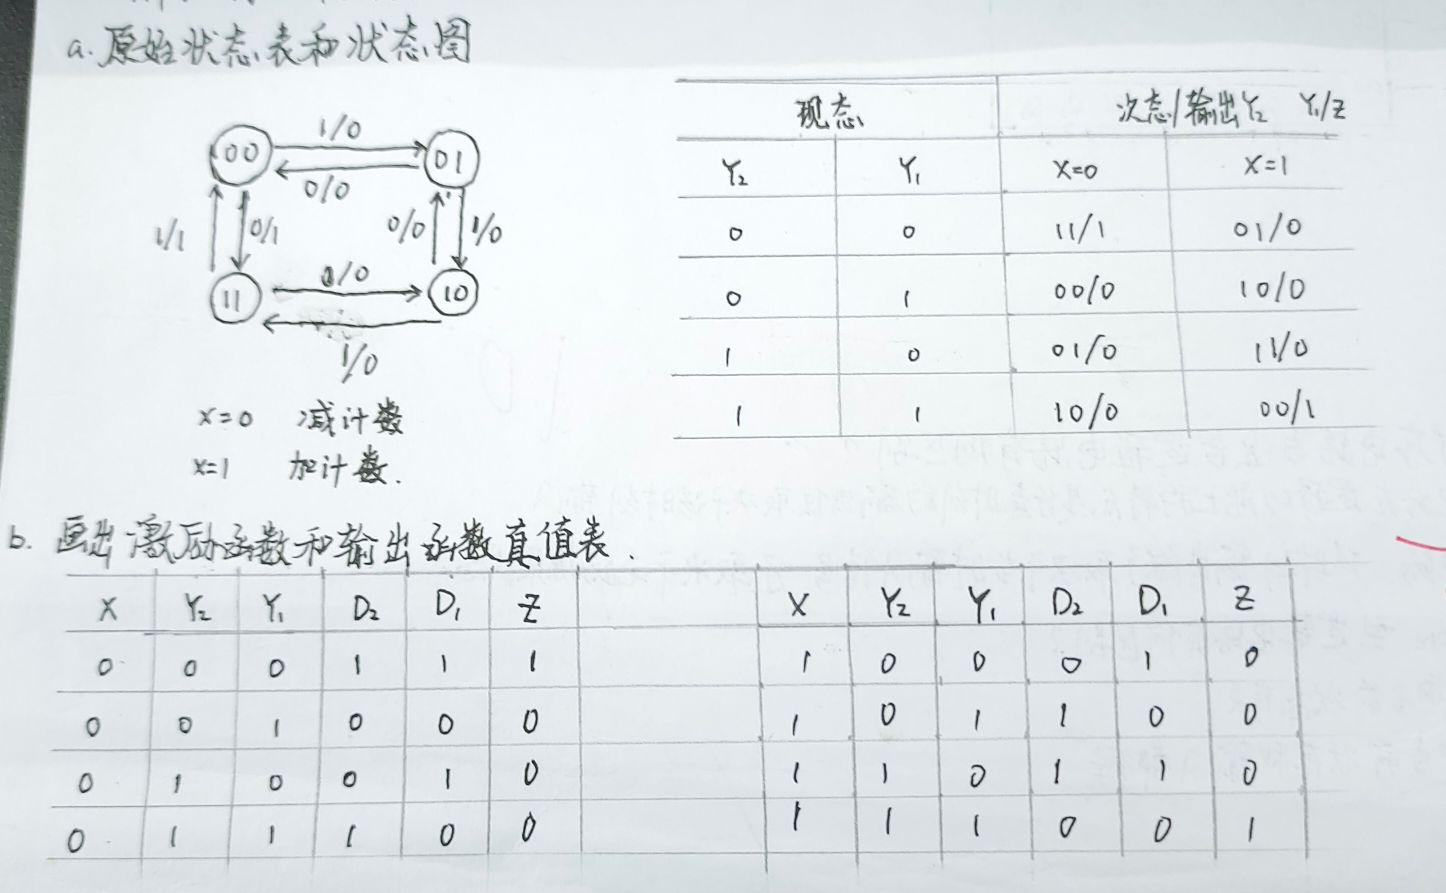 a. 原始状态表和状态图
00 1/0 01
0/0
1/1 0/1 0/0 1/0
11 0/0 10
1/0
x=0 减计数
x=1 加计数.
现态 次态/输出Y₂ Y₁/Z
Y₂ Y₁ X=0 X=1
0 0 11/1 01/0
0 1 00/0 10/0
1 0 01/0 11/0
1 1 10/0 00/1
b. 画出激励函数和输出函数真值表.
X Y₂ Y₁ D₂ D₁ Z X Y₂ Y₁ D₂ D₁ Z
0 0 0 1 1 1 1 0 0 0 1 0
0 0 1 0 0 0 1 0 1 1 0 0
0 1 0 0 1 0 1 1 0 1 1 0
0 1 1 1 0 0 1 1 1 0 0 1